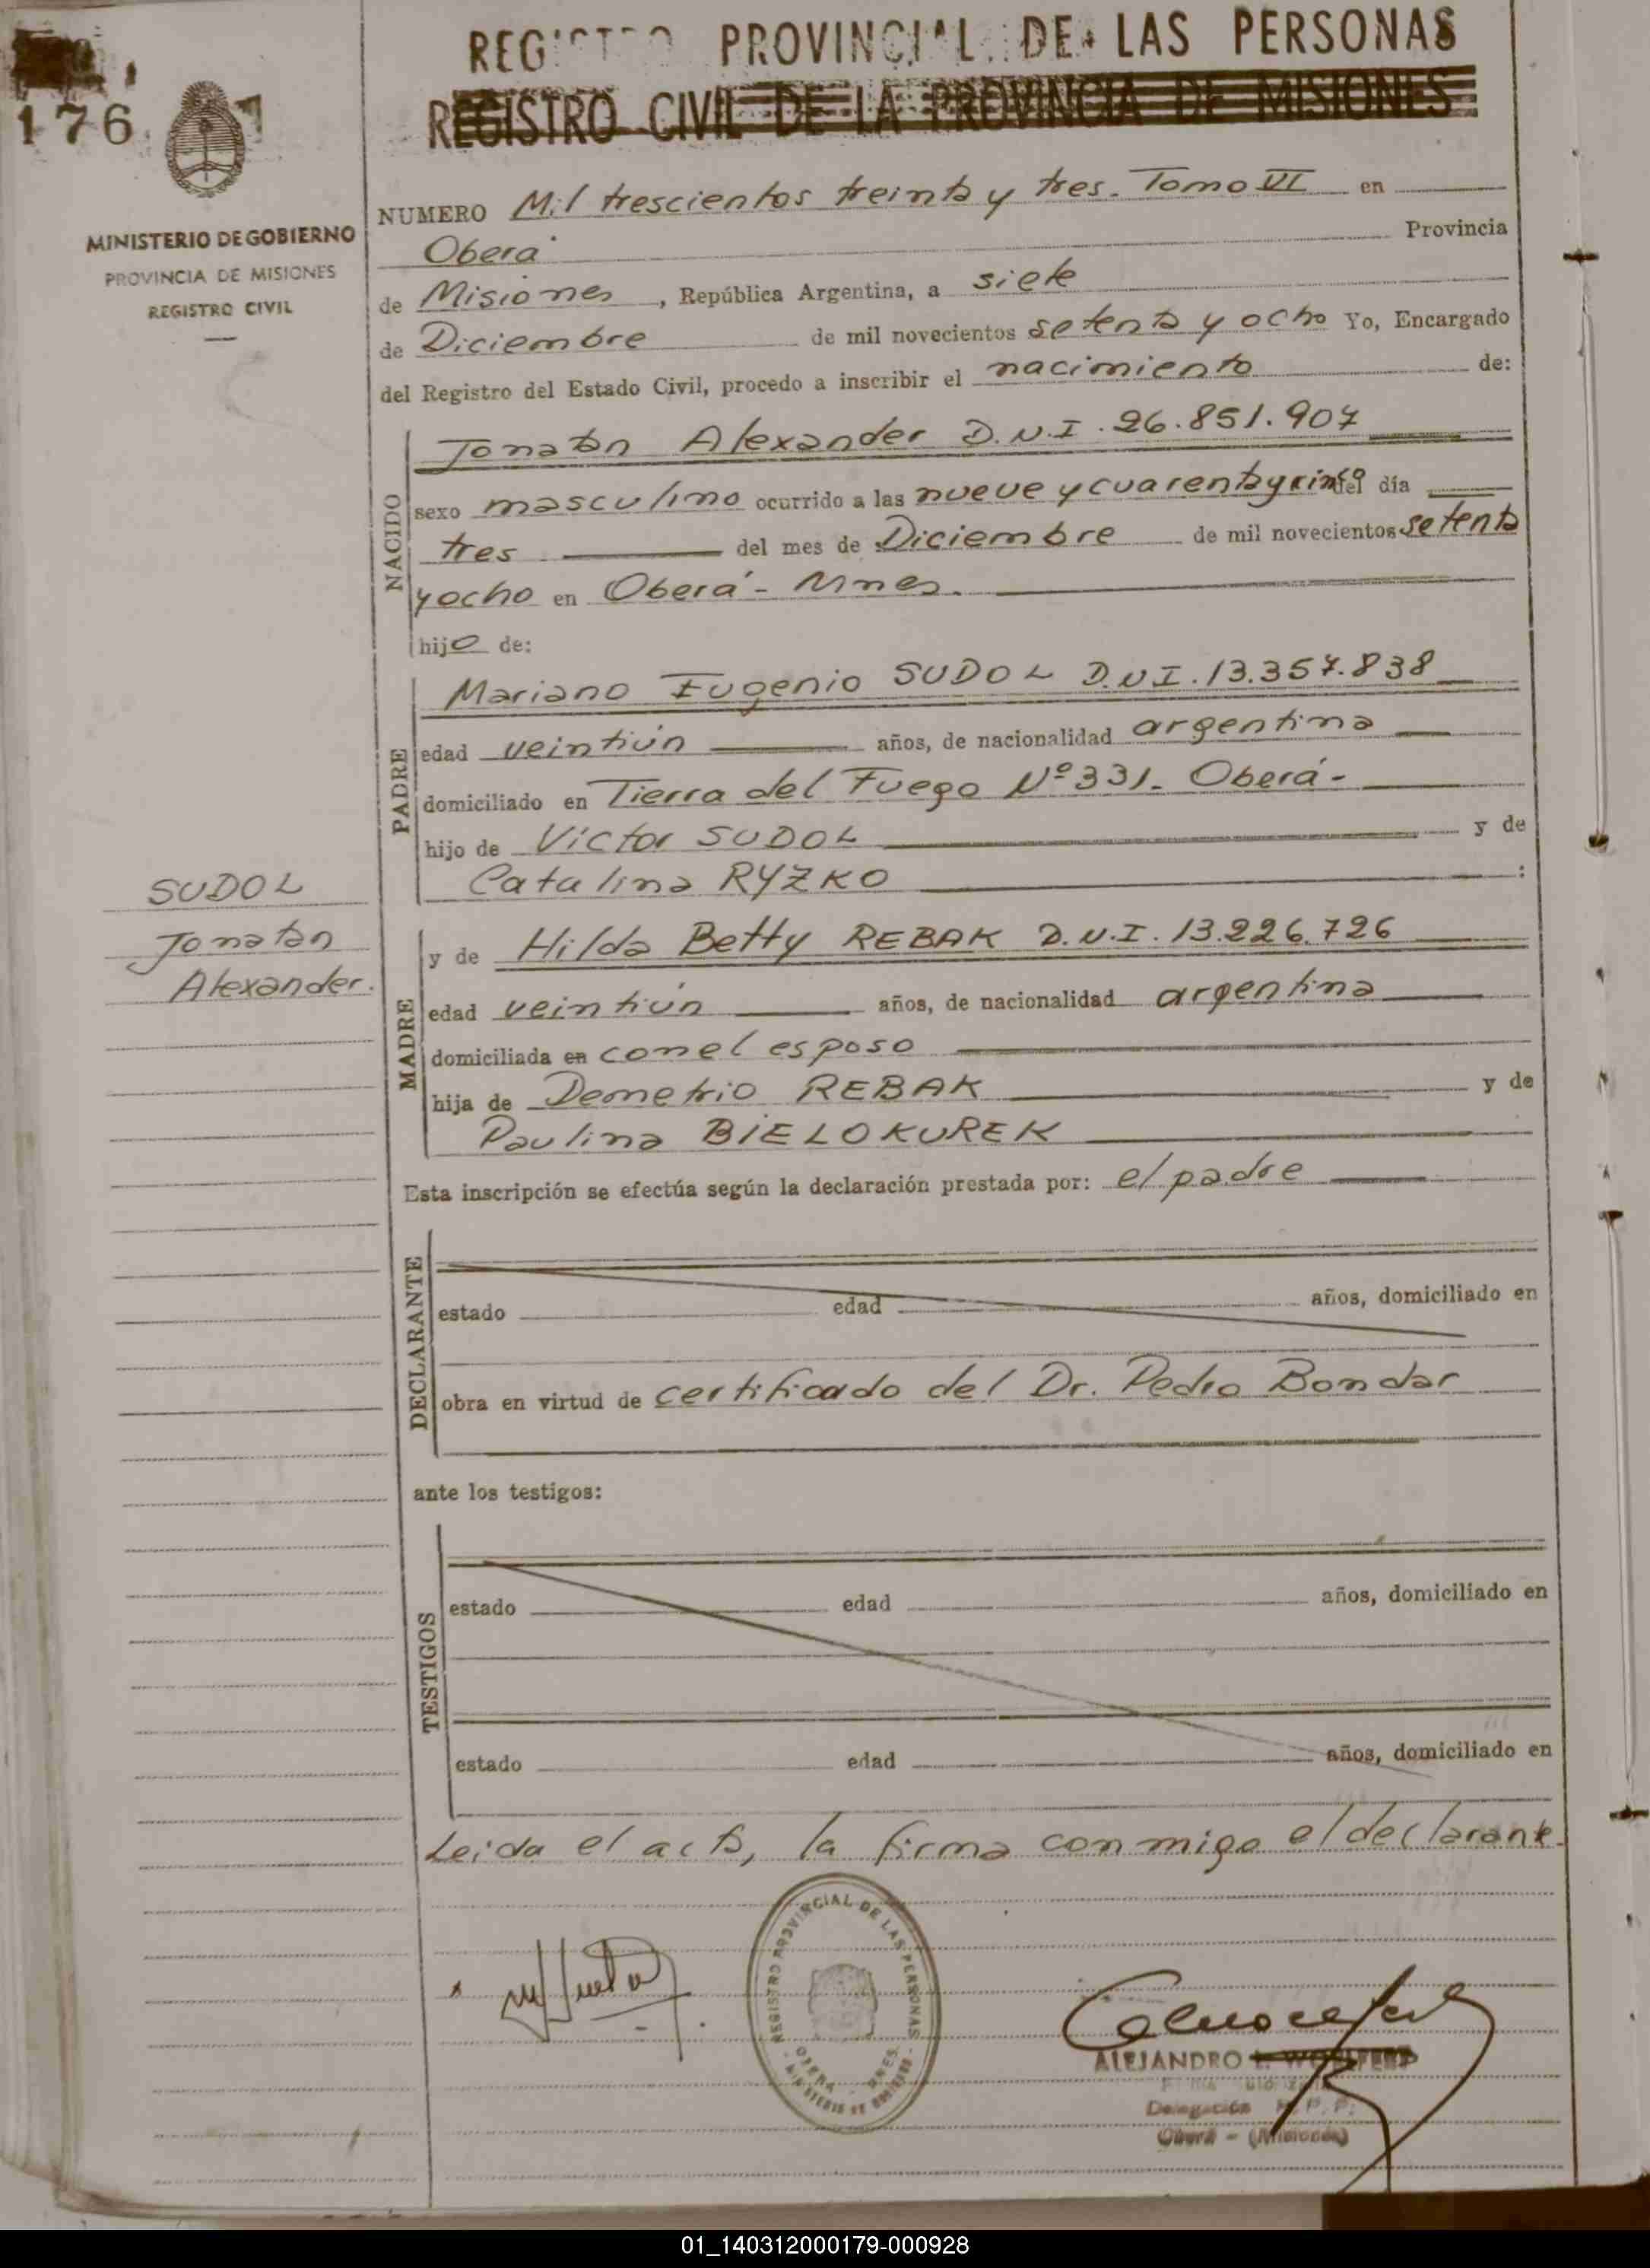 REGISTRO PROVINCIAL DE LAS PERSONAS
REGISTRO CIVIL DE LA PROVINCIA DE MISIONES
176
MINISTERIO DE GOBIERNO
PROVINCIA DE MISIONES
REGISTRO CIVIL
NUMERO Mil trescientos treinta y tres. Tomo VI en
Oberá Provincia
de Misiones, República Argentina, a siete
de Diciembre de mil novecientos setenta y ocho Yo, Encargado
del Registro del Estado Civil, procedo a inscribir el nacimiento de:
NACIDO
Jonatan Alexander D.N.I. 26.851.907
sexo masculino ocurrido a las nueve y cuarenta y cinco del día
tres del mes de Diciembre de mil novecientos setenta
y ocho en Oberá - Mnes.
hijo de:
PADRE
Mariano Eugenio SUDOL D.N.I. 13.357.838
edad veintiún años, de nacionalidad argentina
domiciliado en Tierra del Fuego Nº 331. Oberá -
hijo de Victor SUDOL y de
Catalina RYZKO :
SUDOL
Jonatan
Alexander.
MADRE
y de Hilda Betty REBAK D.N.I. 13.226.726
edad veintiún años, de nacionalidad argentina
domiciliada en con el esposo
hija de Demetrio REBAK y de
Paulina BIELOKUREK
Esta inscripción se efectúa según la declaración prestada por: el padre
DECLARANTE
estado edad años, domiciliado en
obra en virtud de certificado del Dr. Pedro Bondar
ante los testigos:
TESTIGOS
estado edad años, domiciliado en
estado edad años, domiciliado en
Leida el acta, la firma conmigo el declarante.
REGISTRO PROVINCIAL DE LAS PERSONAS
OBERA - MNES.
ALEJANDRO
Delegación R.P.P.
Oberá - (Misiones)
01_140312000179-000928